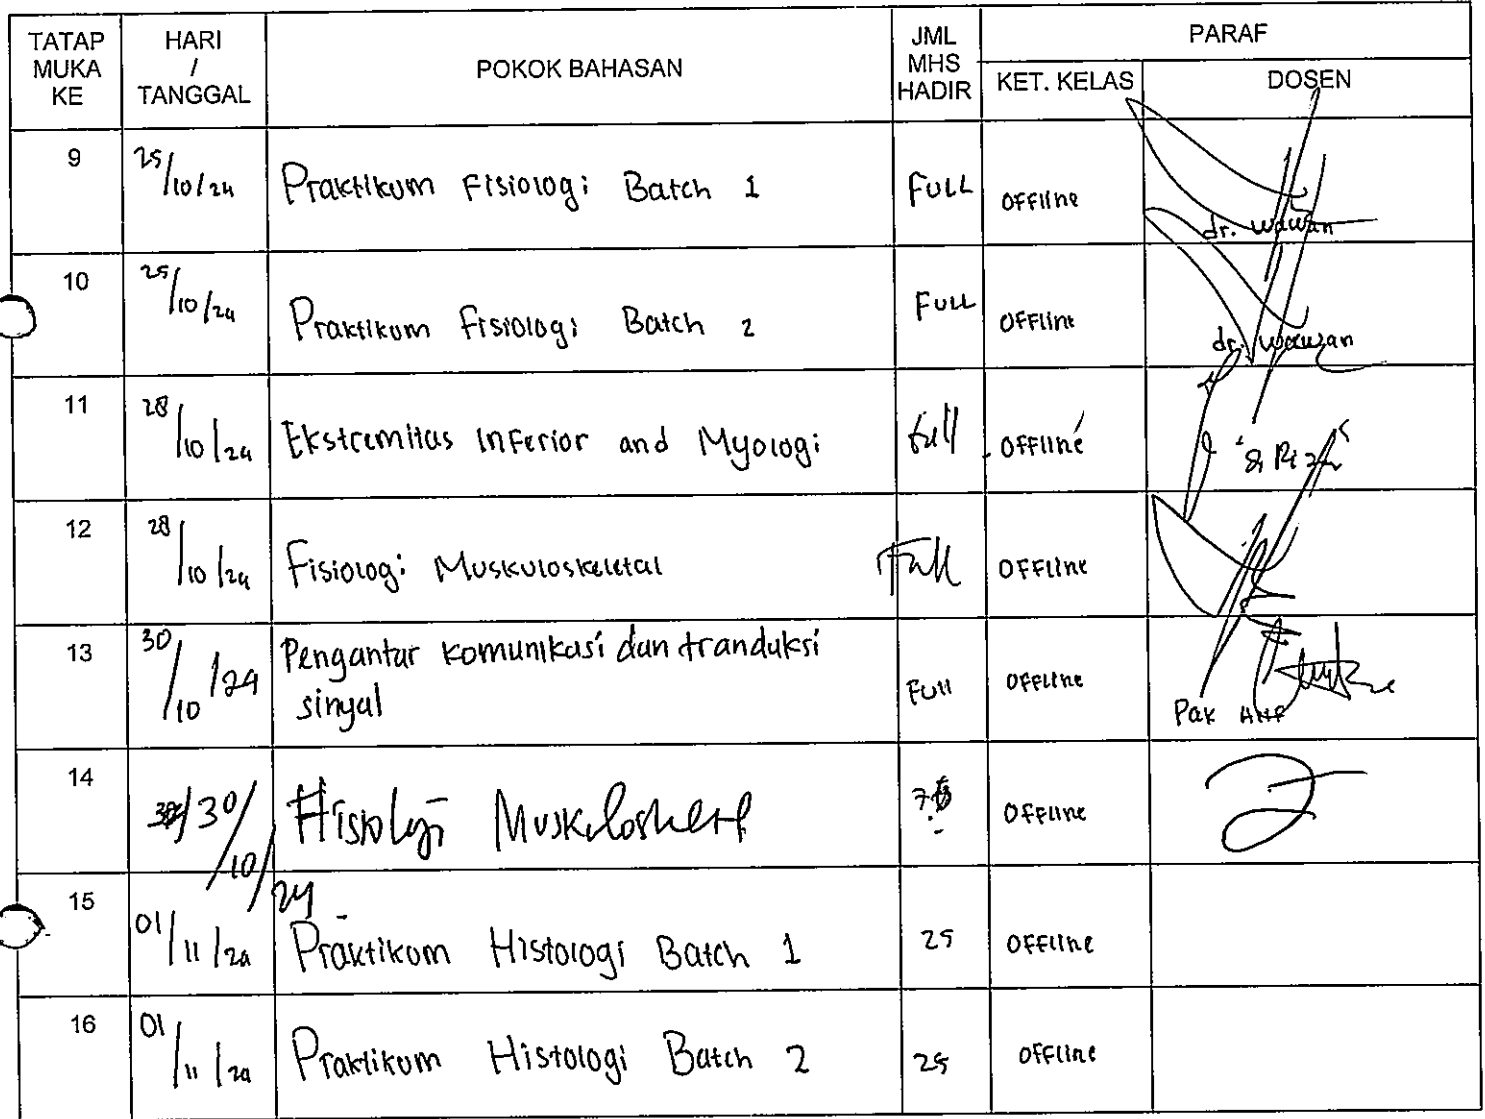 TATAP MUKA KE | HARI / TANGGAL | POKOK BAHASAN | JML MHS HADIR | PARAF
KET. KELAS | DOSEN
9 | 25/10/24 | Praktikum Fisiologi Batch 1 | FULL | OFFline | dr. Wawan
10 | 25/10/24 | Praktikum Fisiologi Batch 2 | FULL | OFFline | dr. Wawan
11 | 28/10/24 | Ekstremitas Inferior and Myologi | full | OFFline
12 | 28/10/24 | Fisiologi Muskuloskeletal | Full | OFFline
13 | 30/10/24 | Pengantar komunikasi dan tranduksi | Full | OFFline | Pak
sinyal
14 | 30/10/24 | Histologi | OFFline
15 | 01/11/24 | Praktikum Histologi Batch 1 | 25 | OFFline
16 | 01/11/24 | Praktikum Histologi Batch 2 | 25 | OFFline